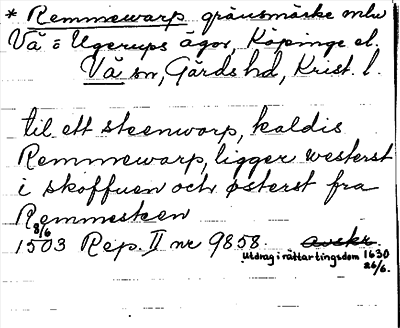 * Remmewarp gränsmärke mln
Vä o Ugerups ägor, Köpinge el.
Vä sn, Gärds hd, Krist. l.
til ett steenworp, kaldis
Remmewarp, ligger westerst
i skoffuen och østerst fra
Remmesteen
8/6
1503 Rep. II nr 9858. avskr.
Utdrag i rättartingsdom 1630
26/6.